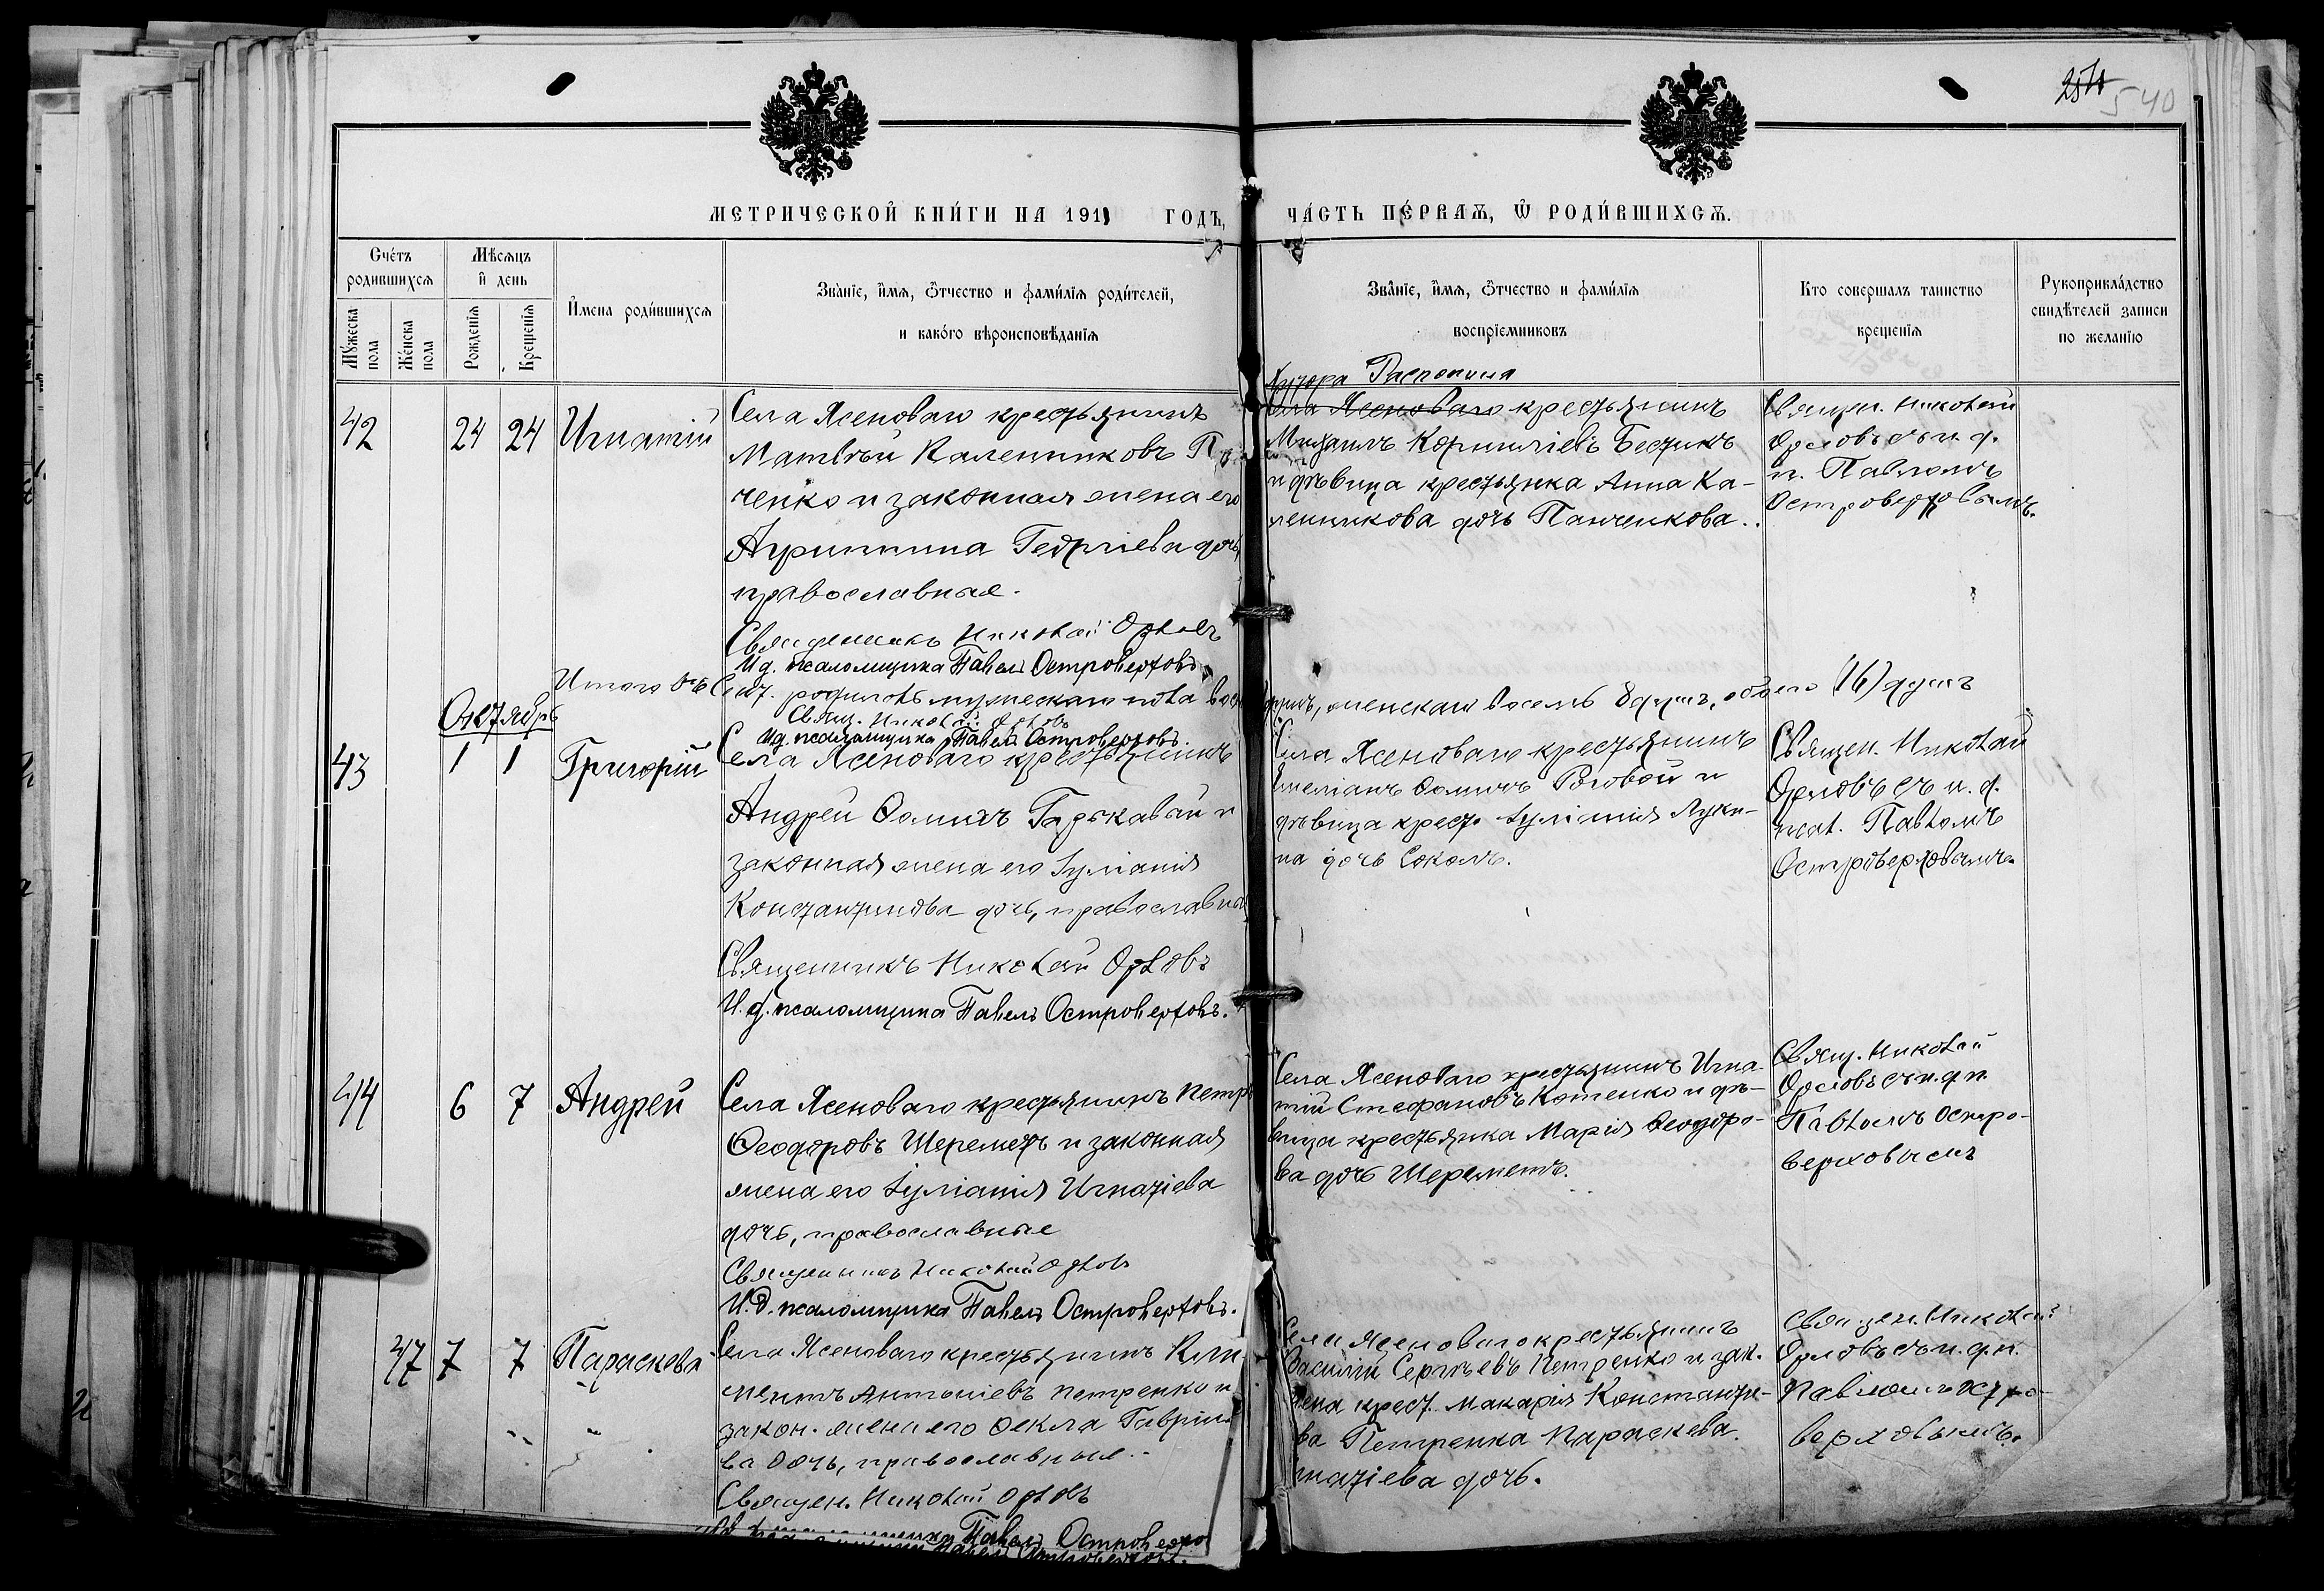 251
540
МЕТРИЧЕСКОЙ КНИ́ГИ НА 1911 ГОДЪ,
ЧА́СТЬ ПЕ́РВАѦ, Ѽ РОДИ́ВШИХСѦ.
Сче́тъ родившихсѧ
Мѣсѧцъ и҆ день
И҆мена роди́вшихсѧ
Зва́нїе, и҆мѧ, ѻ҆́тчество и фами́лїѧ роди́телей,
и како́го вѣроисповѣ́данїѧ
Зва́нїе, и҆мѧ, ѻ҆́тчество и фами́лїѧ
воспрїемниковъ
Кто совершалъ таинство
крещенїѧ
Рукоприкла́дство
свидѣ́телей записи
по желанїю
Му́жеска пола
Же́нска пола
Рожденїѧ
Крещенїѧ
42
24
24
Игнатій
Села Ясеноваго крестьянинъ
Матвѣй Каленниковъ
ченко и законная жена его
Агриппина Георгіева дочь,
православные.
Священникъ Николай Орловъ
И.д. псаломщика Павелъ Островерховъ
хутора
Села Ясеноваго крестьянинъ
Михаилъ Корниліевъ
и дѣвица крестьянка Анна Ка-
ленникова дочь Панченкова.
Священ. Николай
Орловъ съ и. д.
п. Павломъ
Островерховымъ.
Итого въ Сент. родилось мужескаго пола
женскаго восемь 8 душъ, обоего (16) душъ
Свящ. Николай Орловъ
Ид. псаломщика Павелъ Островерховъ
Октябрь
43
1
1
Григорій
Села Ясеноваго крестьянинъ
Андрей Ѳоминъ Гаркавый и
законная жена его Іуліанія
Константинова дочь, православные
Священникъ Николай Орловъ
И.д. псаломщика Павелъ Островерховъ.
Села Ясеноваго крестьянинъ
Емеліанъ Ѳоминъ Роговой и
дѣвица крест. Іуліанія Луки-
на дочь Соколъ.
Священ. Николай
Орловъ съ и. д.
псал. Павломъ
Островерховымъ.
44
6
7
Андрей
Села Ясеноваго крестьянинъ Петръ
Ѳеодоровъ Шереметъ и законная
жена его Іуліанія Игнатіева
дочь, православные
Священникъ Николай Орловъ
И.д. псаломщика Павелъ Островерховъ.
Села Ясеноваго крестьянинъ Игна-
тій Стефановъ Котенко и дѣ-
вица крестьянка Марія Ѳеодоро-
ва дочь Шереметъ.
Свящ. Николай
Орловъ съ и. д. п.
Павломъ Остро-
верховымъ
47
7
7
Параскева
Села Ясеноваго крестьянинъ Кли
ментъ Антоніевъ Петренко и
закон. жена его Ѳекла Гавріи
ва дочь, православные.
Священ. Николай Орловъ
Павелъ Островерхо
Села Ясеноваго крестьянинъ
Василій Сергѣевъ Петренко и зак.
жена крест. Макарія Константи-
ва Петренка Параскева
Игнатіева дочь.
Священ. Николай
Орловъ съ и. д. п.
Павломъ Остро-
верховымъ.